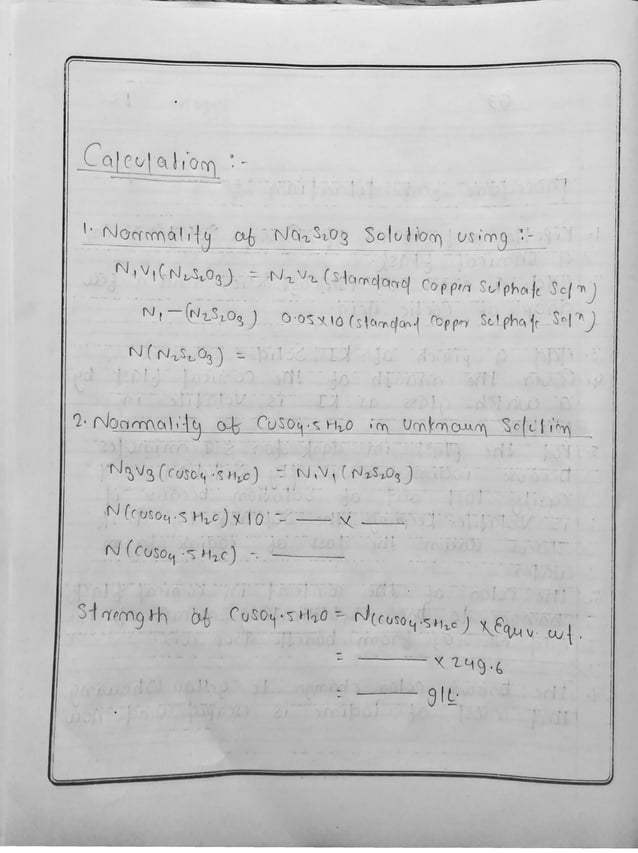 Calculation :-
1. Normality of Na2S2O3 Solution using :-
N1V1 (N2S2O3) = N2V2 (Standard Copper Sulphate Soln)
N1 - (N2S2O3) 0.05x10 (standard copper Sulphate Soln)
N (N2S2O3) =
2. Normality of CuSO4.5H2O in Unknown Solution
N3V3 (CuSO4.5H2O) = N1V1 (N2S2O3)
N (CuSO4.5H2O) x10 = ___ x ___
N (CuSO4.5H2O) = ___
Strength of CuSO4.5H2O = N(CuSO4.5H2O) x Equiv. wt.
= ___ x 249.6
= ___ g/L.